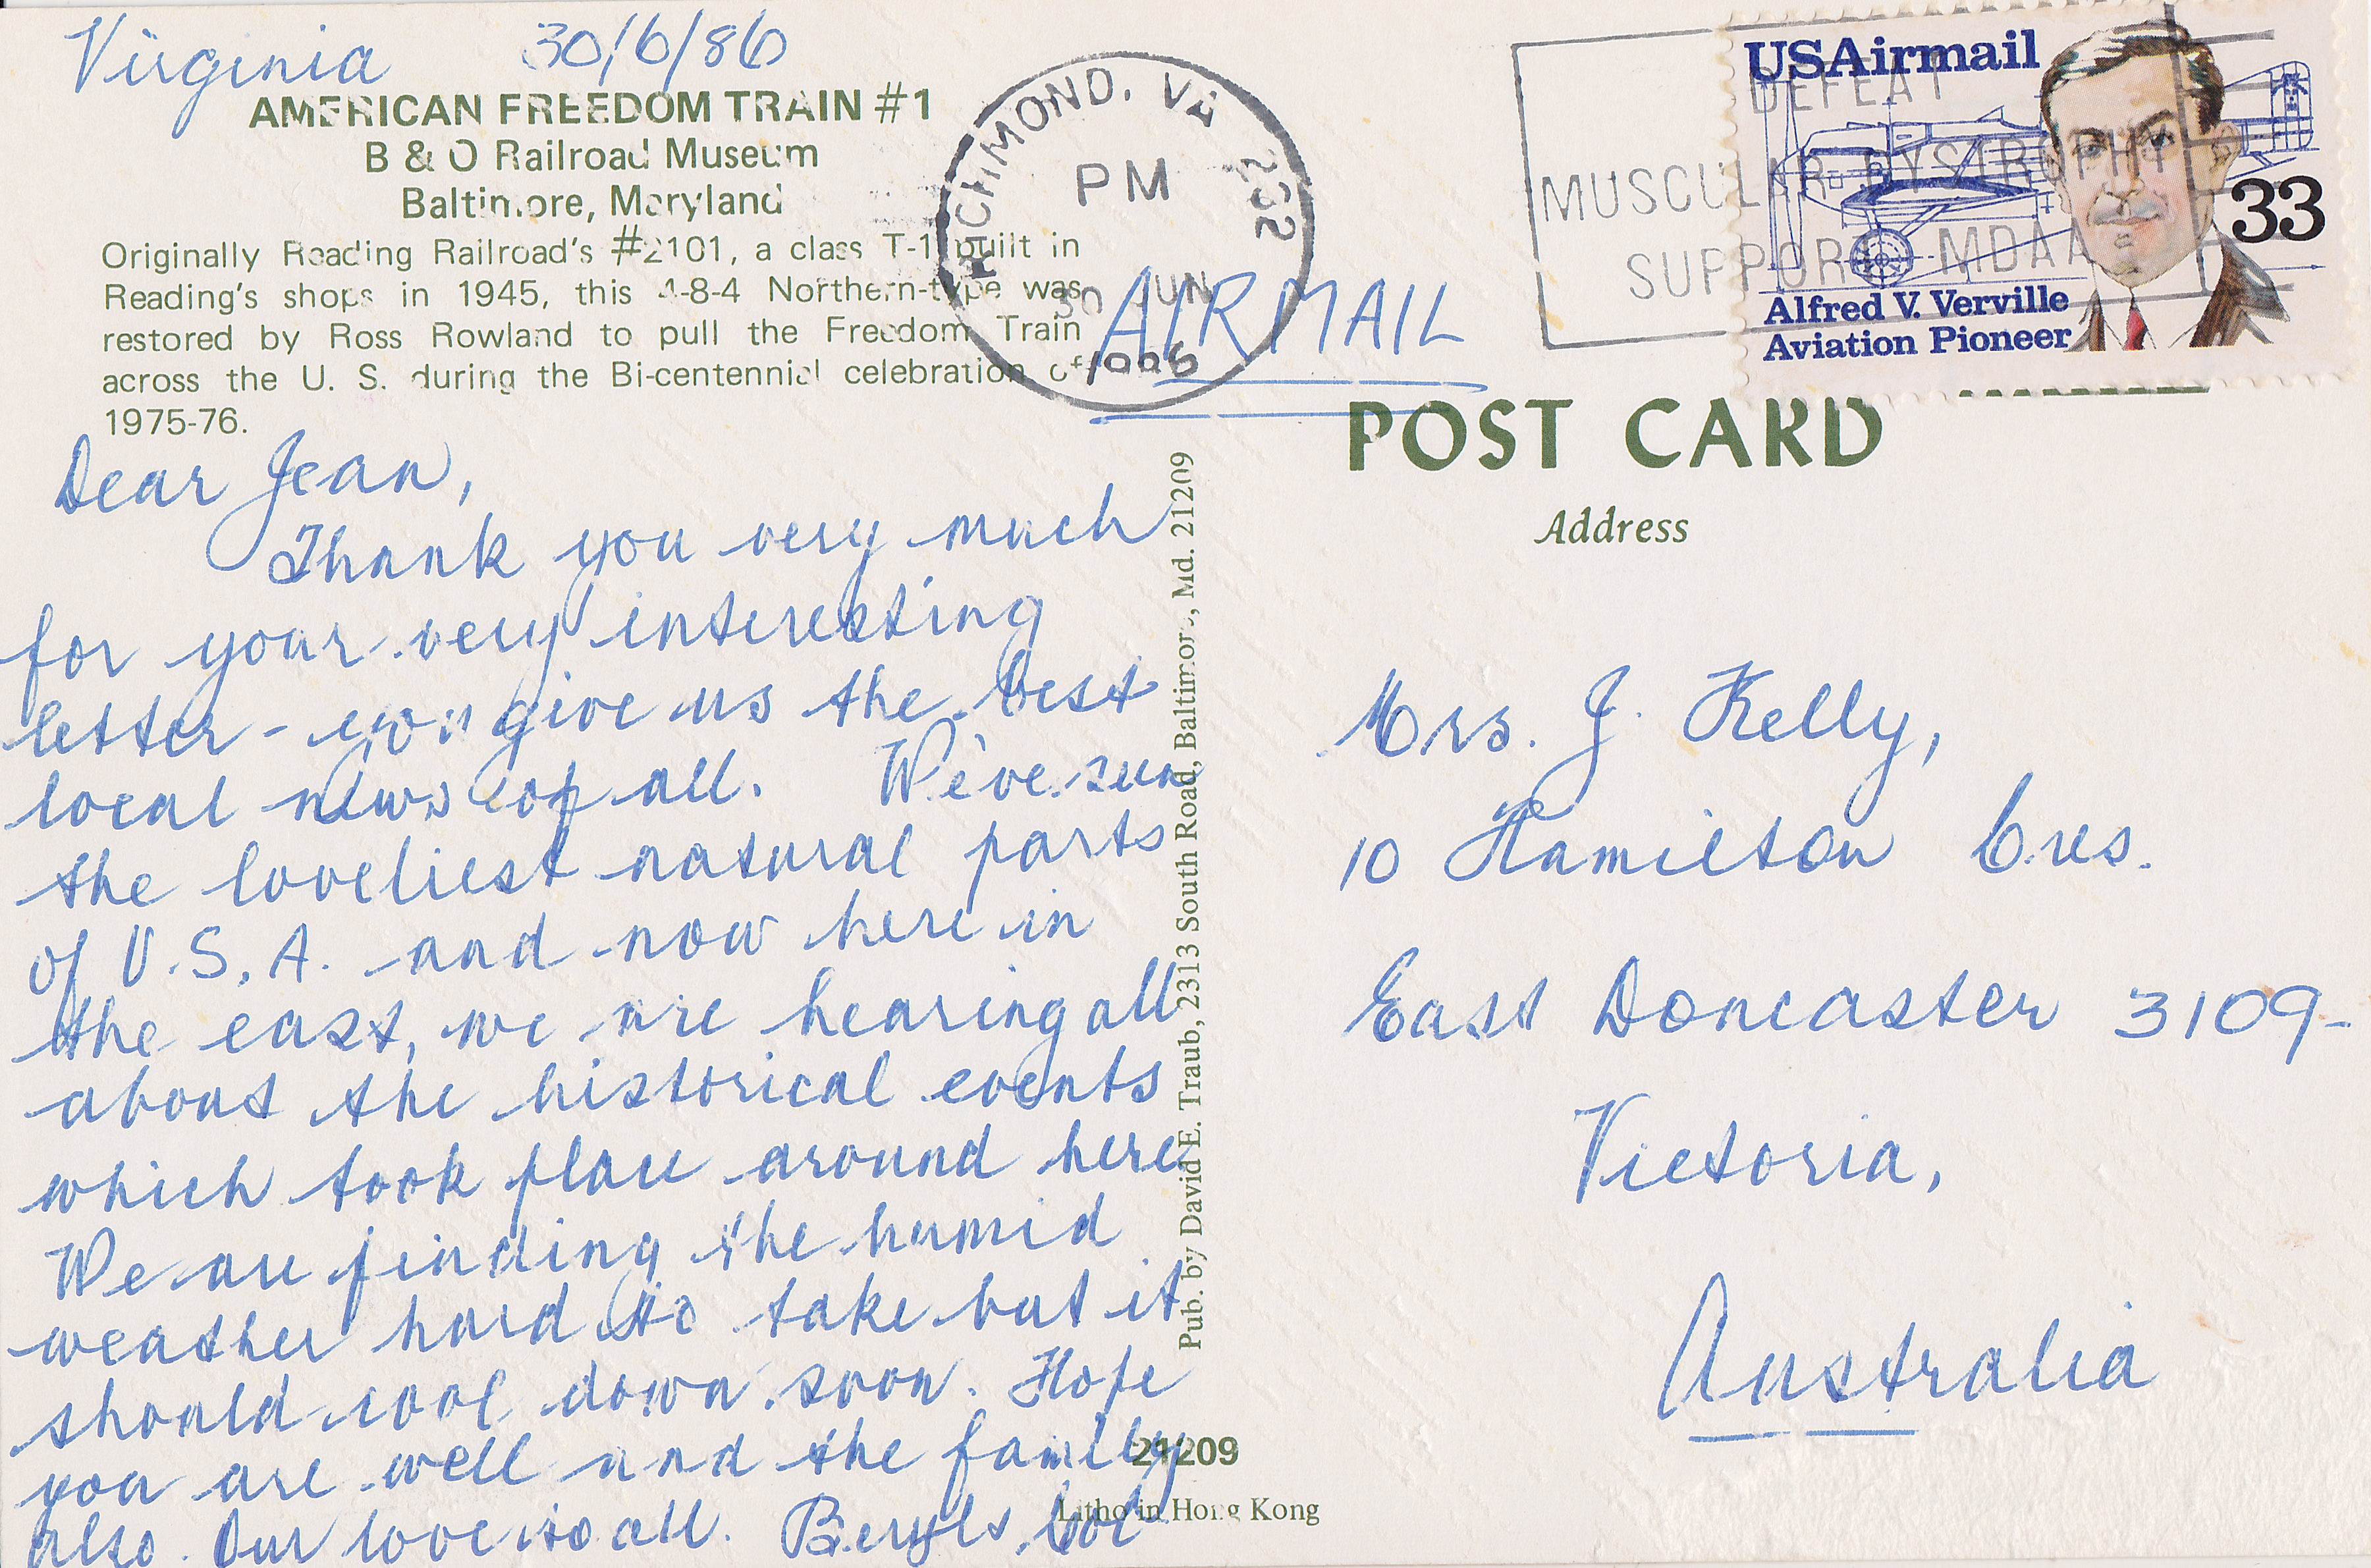 Virginia 30/6/86
AMERICAN FREEDOM TRAIN #1
B & O Railroad Museum
Baltimore, Maryland
Originally Reading Railroad's #2101, a class T-1 built in
Reading's shops in 1945, this 4-8-4 Northern-type was
restored by Ross Rowland to pull the Freedom Train
across the U. S. during the Bi-centennial celebration of
1975-76.
Dear Jean,
Thank you very much
for your very interesting
letter - you give us the best
local news of all. We've seen
the loveliest natural parts
of U.S.A. and now here in
the east, we are hearing all
about the historical events
which took place around here
We are finding the humid
weather hard to take but it
should cool down soon. Hope
you are well and the family
also. Our love to all. Beryl &
RICHMOND, VA 232
PM
30 JUN
1986
AIRMAIL
DEFEAT
MUSCULAR DYSTROPHY
SUPPORT MDAA
USAirmail
33
Alfred V. Verville
Aviation Pioneer
POST CARD
Address
Mrs. J. Kelly,
10 Hamilton Cres.
East Doncaster 3109-
Victoria,
Australia
Pub. by David E. Traub, 2313 South Road, Baltimore, Md. 21209
21209
Litho in Hong Kong